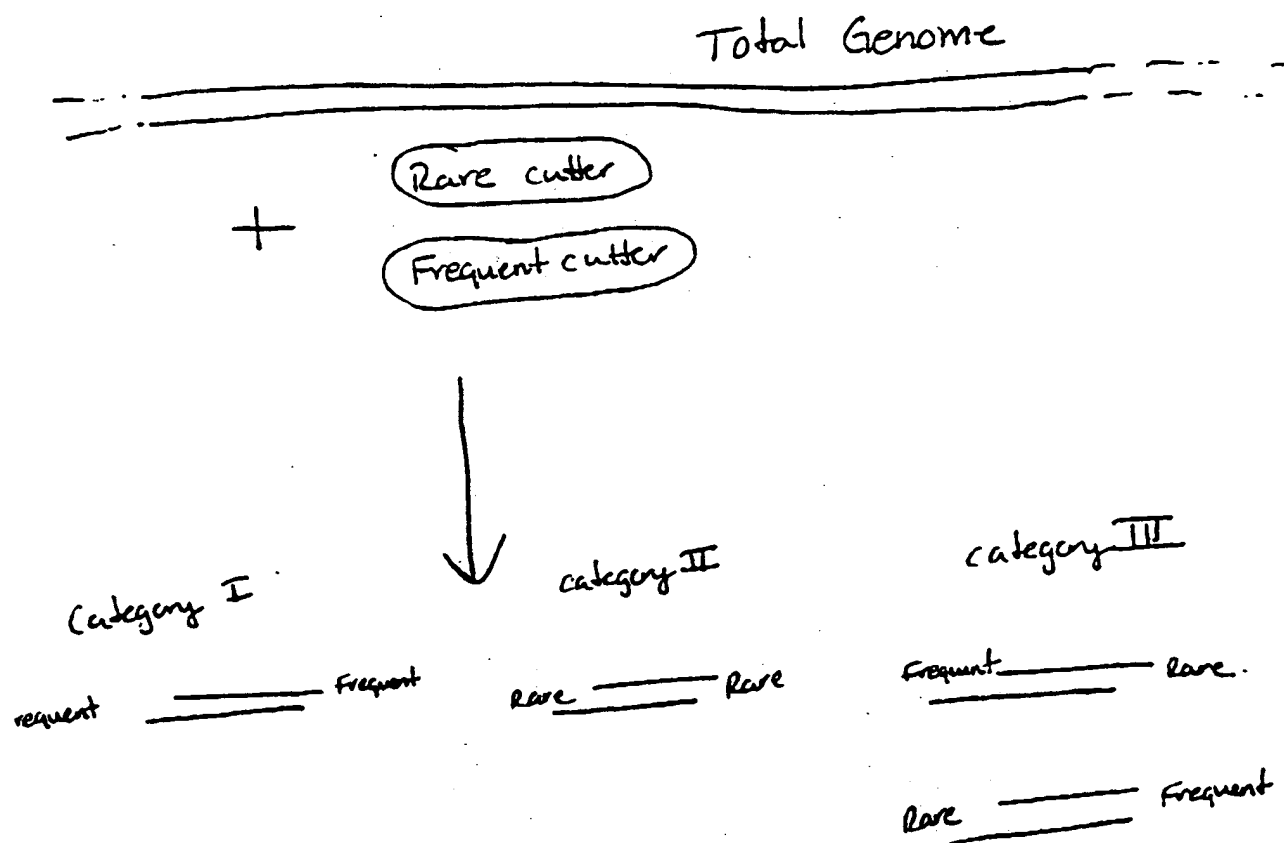 Total Genome
Rare cutter
+
Frequent cutter
Category I
category II
category III
requent Frequent
Rare Rare
Frequent Rare.
Rare Frequent